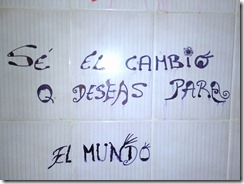 SÉ EL CAMBIO
Q DESEAS PARA
EL MUNDO